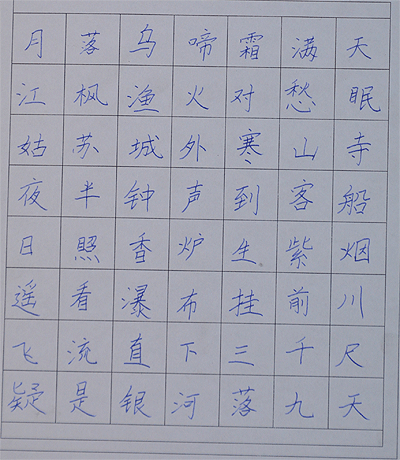 月落乌啼霜满天
江枫渔火对愁眠
姑苏城外寒山寺
夜半钟声到客船
日照香炉生紫烟
遥看瀑布挂前川
飞流直下三千尺
疑是银河落九天